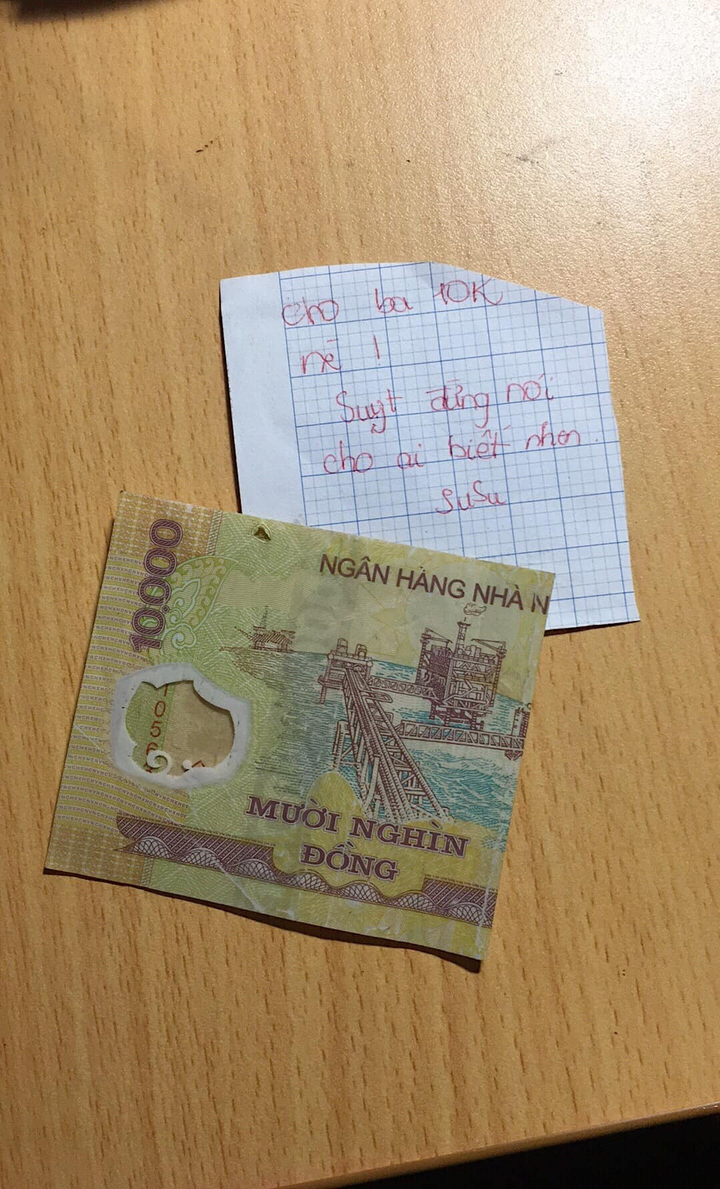 cho ba 10K
nè !
Suỵt đừng nói
cho ai biết nhen.
SuSu
10.000
NGÂN HÀNG NHÀ N
MƯỜI NGHÌN
ĐỒNG